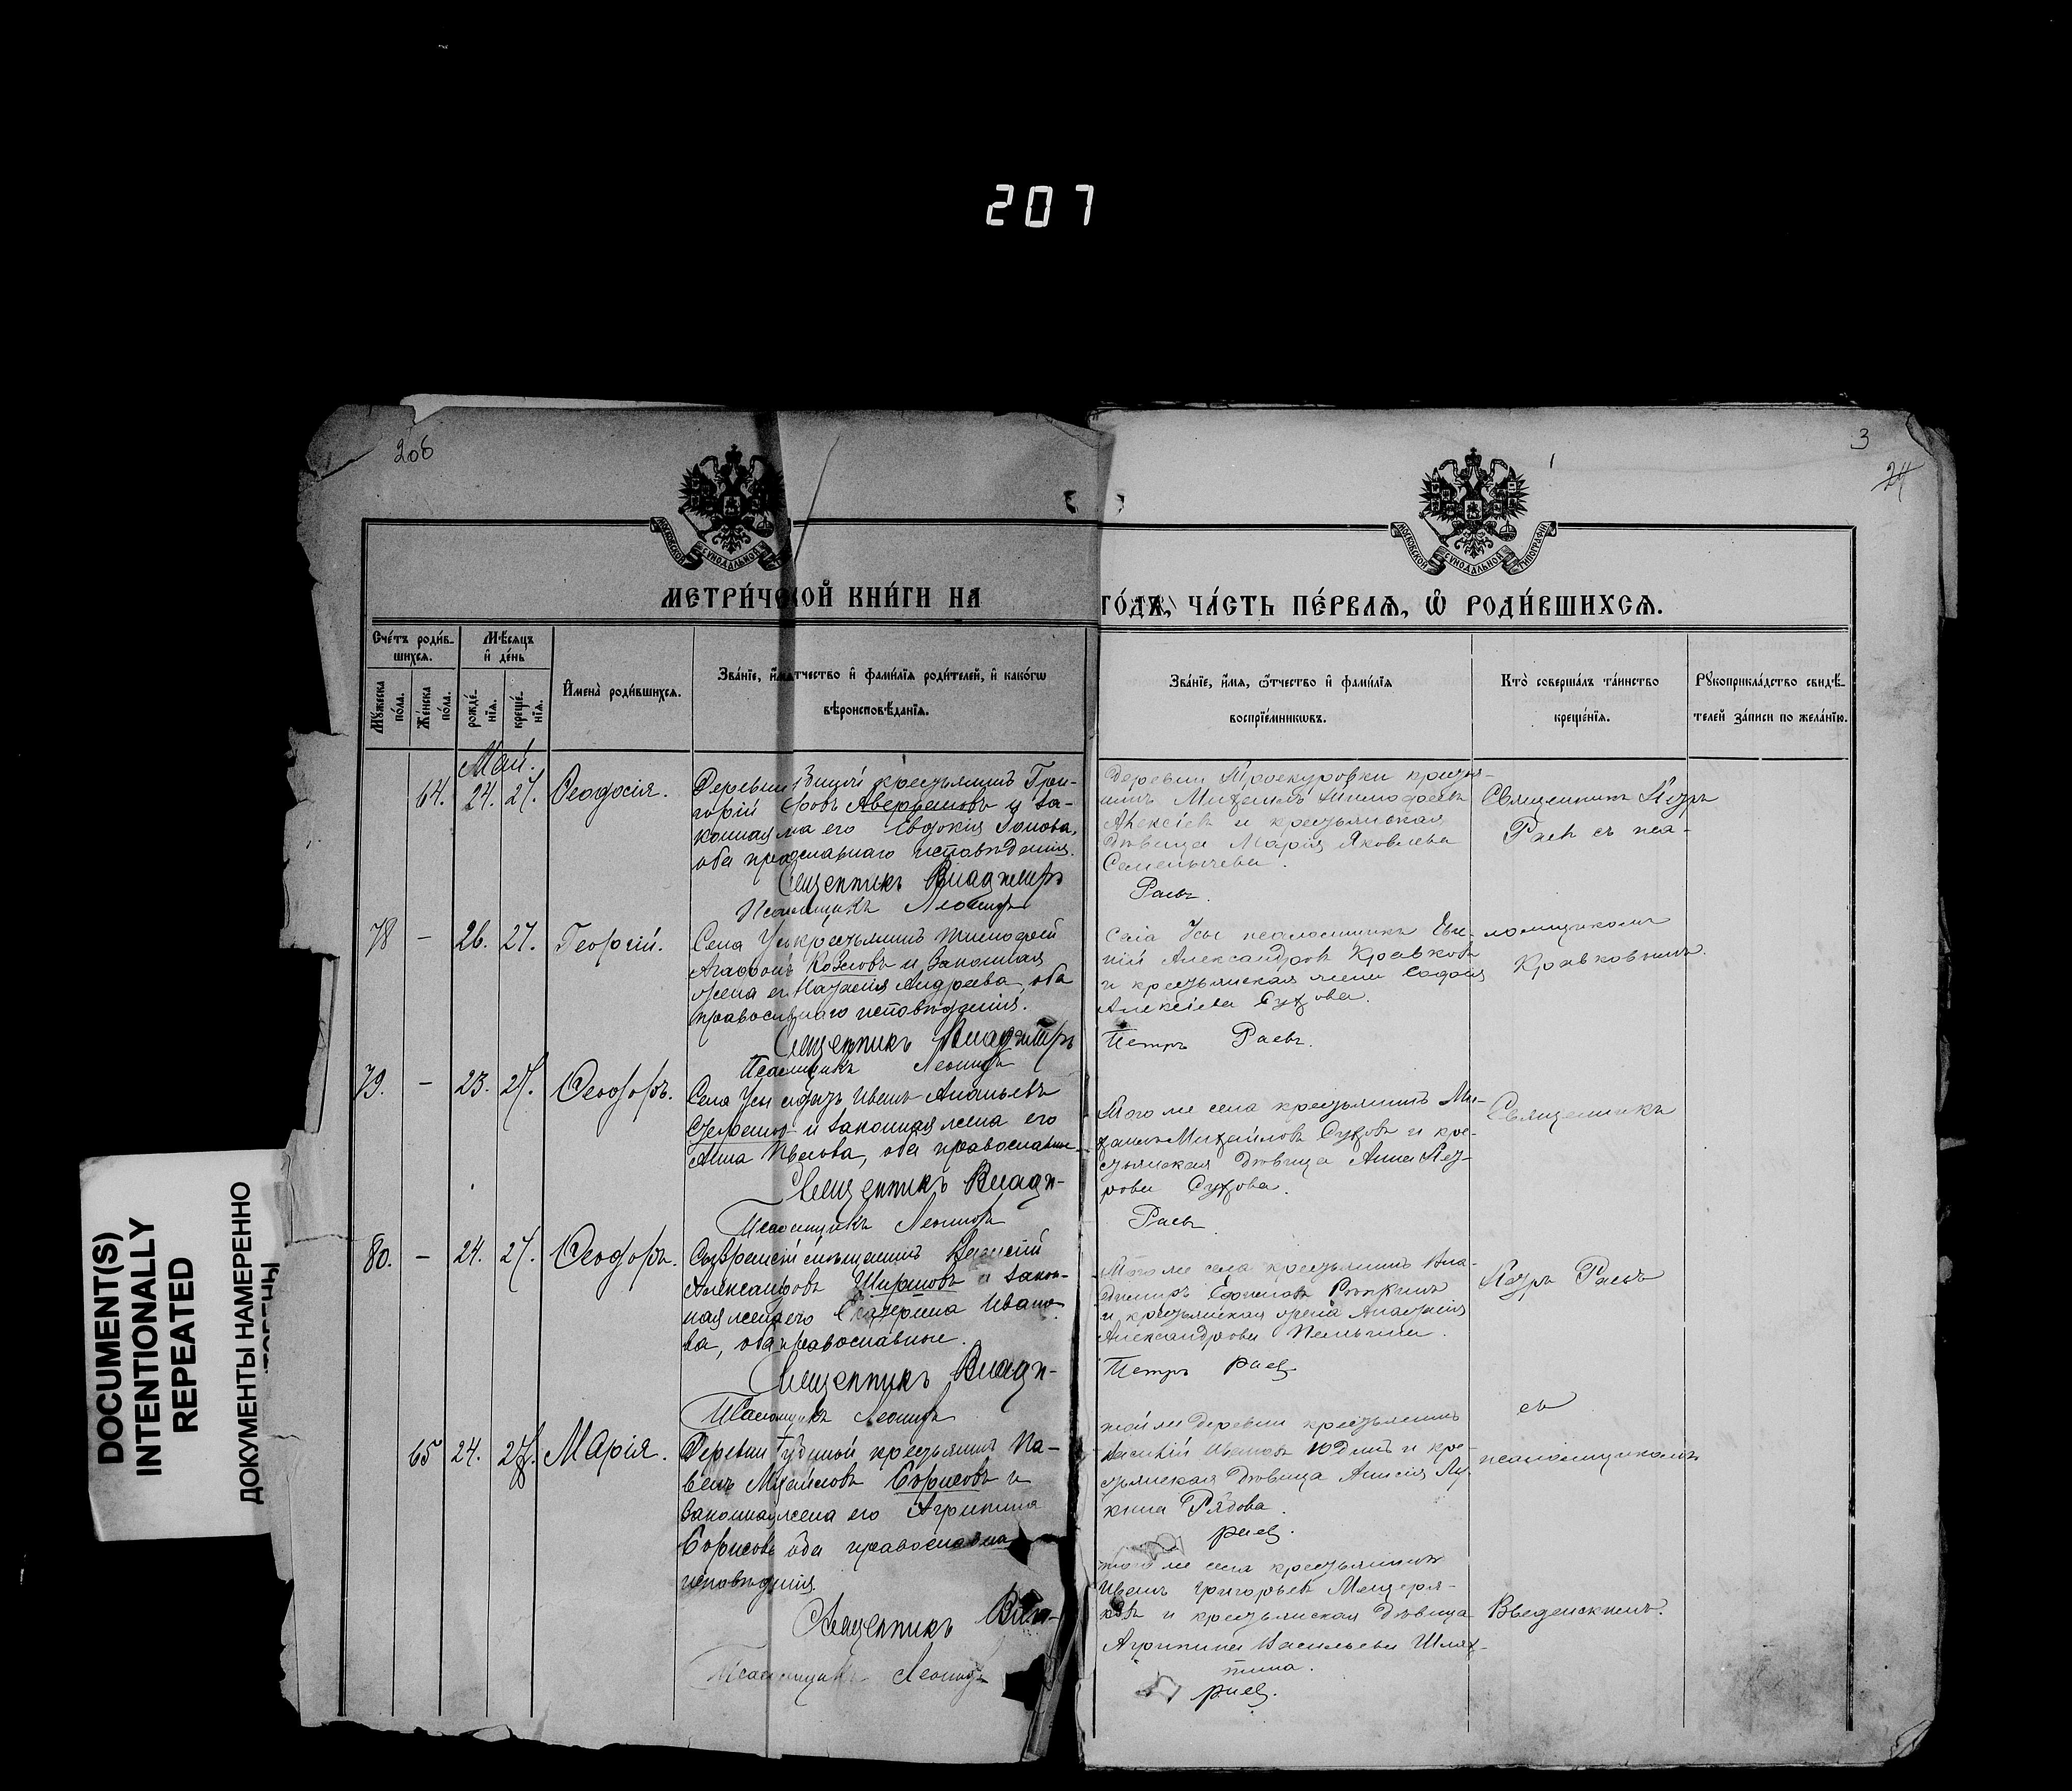 207
206
3
24
МОСКОВСКОЙ СѴНОДАЛЬНОЙ
МОСКОВСКОЙ СѴНОДАЛЬНОЙ ТИПОГРАФІИ
МЕТРИ́ЧЕ ОЙ КНИ́ГИ НА
ГО́ДЪ, ЧА́СТЬ ПЕ́РВАѦ, Ѽ РОДИ́ВШИХСѦ.
Сче́тъ роди́в-
шихсѧ.
Мѣ́сѧцъ
и҆ де́нь
Мꙋ́жеска
по́ла.
Же́нска
по́ла.
рожде́-
нїѧ.
креще́-
нїѧ.
И҆мена̀ роди́вшихсѧ.
Зва́нїе, и҆́мѧ тчество и҆ фами́лїѧ роди́телей, и҆ како́гѡ
вѣроисповѣ́данїѧ.
Зва́нїе, и҆́мѧ, ѻ҆́тчество и҆ фами́лїѧ
воспрїе́мникѡвъ.
Кто̀ соверша́лъ та́инство
креще́нїѧ.
Рꙋкоприкла́дство свидѣ́-
телей за́писи по жела́нїю.
Май.
64. 24. 27. Ѳеодосія.
Деревни крестьянинъ Гри-
горій Аверьяновъ и за-
конная его Евдокія
оба православнаго исповѣданія.
Священникъ Владимиръ
Псаломщикъ Леонидъ
Деревни Проскуровки кресть-
янинъ Михаилъ Тимофеевъ
Алексѣевъ и крестьянская
дѣвица Марія Яковлева
Семенычева.
Раевъ.
Священникъ Петръ
Раевъ съ пса-
78 – 26. 27. Георгій.
Села Усы крестьянинъ Тимофей
Агафоновъ Козловъ и законная
жена его Андреева, оба
православнаго исповѣданія.
Священникъ Владимиръ
Псаломщикъ Леонидъ
Села Усы псаломщикъ Евге-
ній Александровъ Кравковъ
и крестьянская жена Софія
Алексѣева Сухова.
Петръ Раевъ.
ломщикомъ
Кравковымъ.
79. – 23. 27. Ѳеодоръ.
Села Усы Иванъ Ананьевъ
и законная жена его
Анна оба православные
Священникъ Влади-
Псаломщикъ Леонидъ
Того же села крестьянинъ Ми-
хаилъ Михайловъ Суховъ и кре-
стьянская дѣвица Анна Пет-
рова Сухова.
Раевъ
Священникъ
80. – 24. 27. Ѳеодоръ.
Сызранскій мѣщанинъ Василій
Александровъ Ширшовъ и закон-
ная жена его Екатерина Ивано-
ва, оба православные.
Священникъ Влади-
Псаломщикъ Леонидъ
Того же села крестьянинъ Вла-
димиръ Ефимовъ Рѣпкинъ
и крестьянская жена Анастасія
Александрова
Петръ Раев
Петръ Раевъ
65 24. 27. Марія.
Деревни крестьянинъ Па-
велъ Михайловъ Борисовъ и
законная жена его Агрипина
Борисова оба православна
исповѣданія.
Священникъ Вла-
Псаломщикъ Леонидъ
той же деревни крестьянинъ
Василій Ивановъ Юдинъ и кре-
стьянская дѣвица Анисія Лу-
кина Рядова
Раев.
съ
псаломщикомъ
того же села крестьянинъ
Иванъ Григорьевъ Мещеря-
ковъ и крестьянская дѣвица
Агрипина Васильева Шлях-
тина.
Раев.
Введенскимъ.
DOCUMENT(S)
INTENTIONALLY
REPEATED
ДОКУМЕНТЫ НАМЕРЕННО